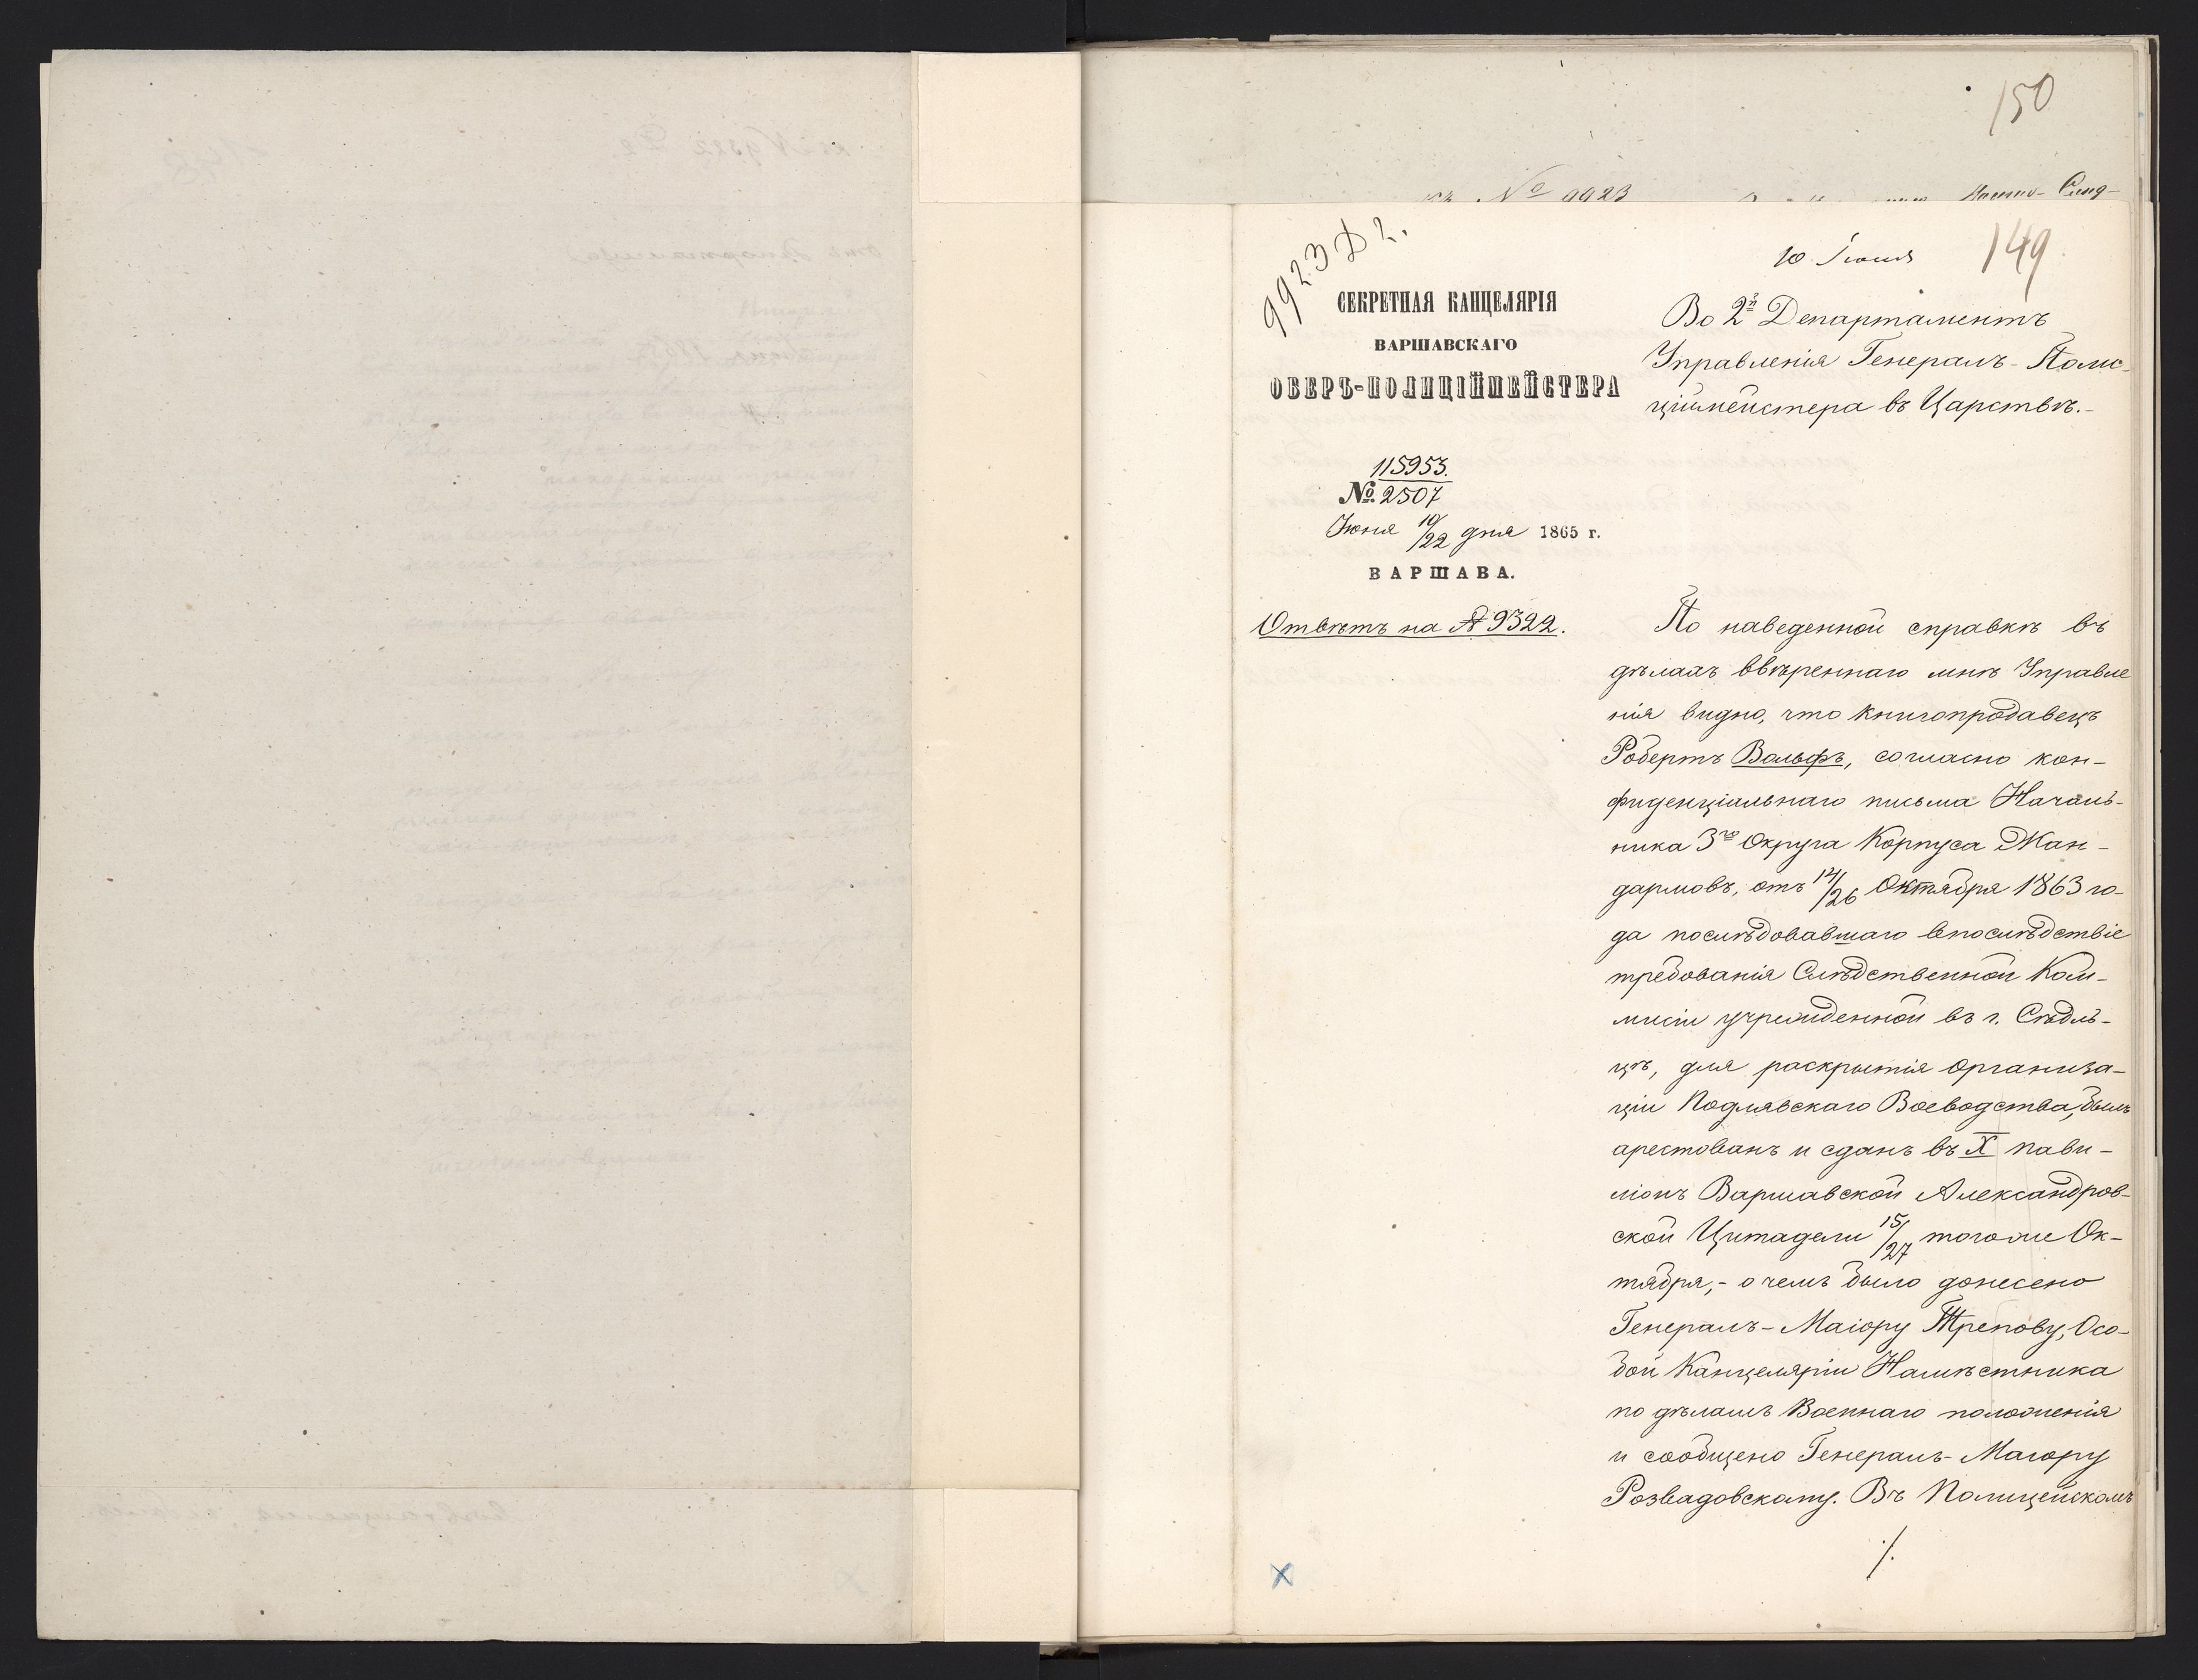 150
къ № 9923
149
10 Іюня
9923 Д 2.
СЕКРЕТНАЯ КАНЦЕЛЯРІЯ
ВАРШАВСКАГО
ОБЕРЪ-ПОЛИЦІЙМЕЙСТЕРА
115953.
№ 2507
Іюня 10/22 дня 1865 г.
ВАРШАВА.
Отвѣтъ на № 9322.
Во 2й Департаментъ
Управленія Генералъ-Поли-
ційместера въ Царствѣ.-
По наведенной справкѣ въ
дѣлахъ ввѣреннаго мнѣ Управле
нія видно, что книгопродавецъ
Робертъ Вольфъ, согласно кон-
фиденціальнаго письма Началь-
ника 3го Округа Корпуса Жан-
дармовъ, отъ 14/26 Октября 1863 го-
да послѣдовавшаго впослѣдствіе
требованія Слѣдственной Ком-
мисіи учрежденной въ г. Сѣдль-
цѣ, для раскрытія организа-
ціи Подлявскаго Воеводства, былъ
арестованъ и сданъ въ X пави-
ліонъ Варшавской Александров-
ской Цитадели 15/27 того же Ок-
тября,- о чемъ было донесено
Генералъ-Маіору Трепову, Осо-
бой Канцеляріи Намѣстника
по дѣламъ Военнаго положенія
и сообщено Генералъ-Маіору
Розвадовскому. Въ Полицейскомъ
./.